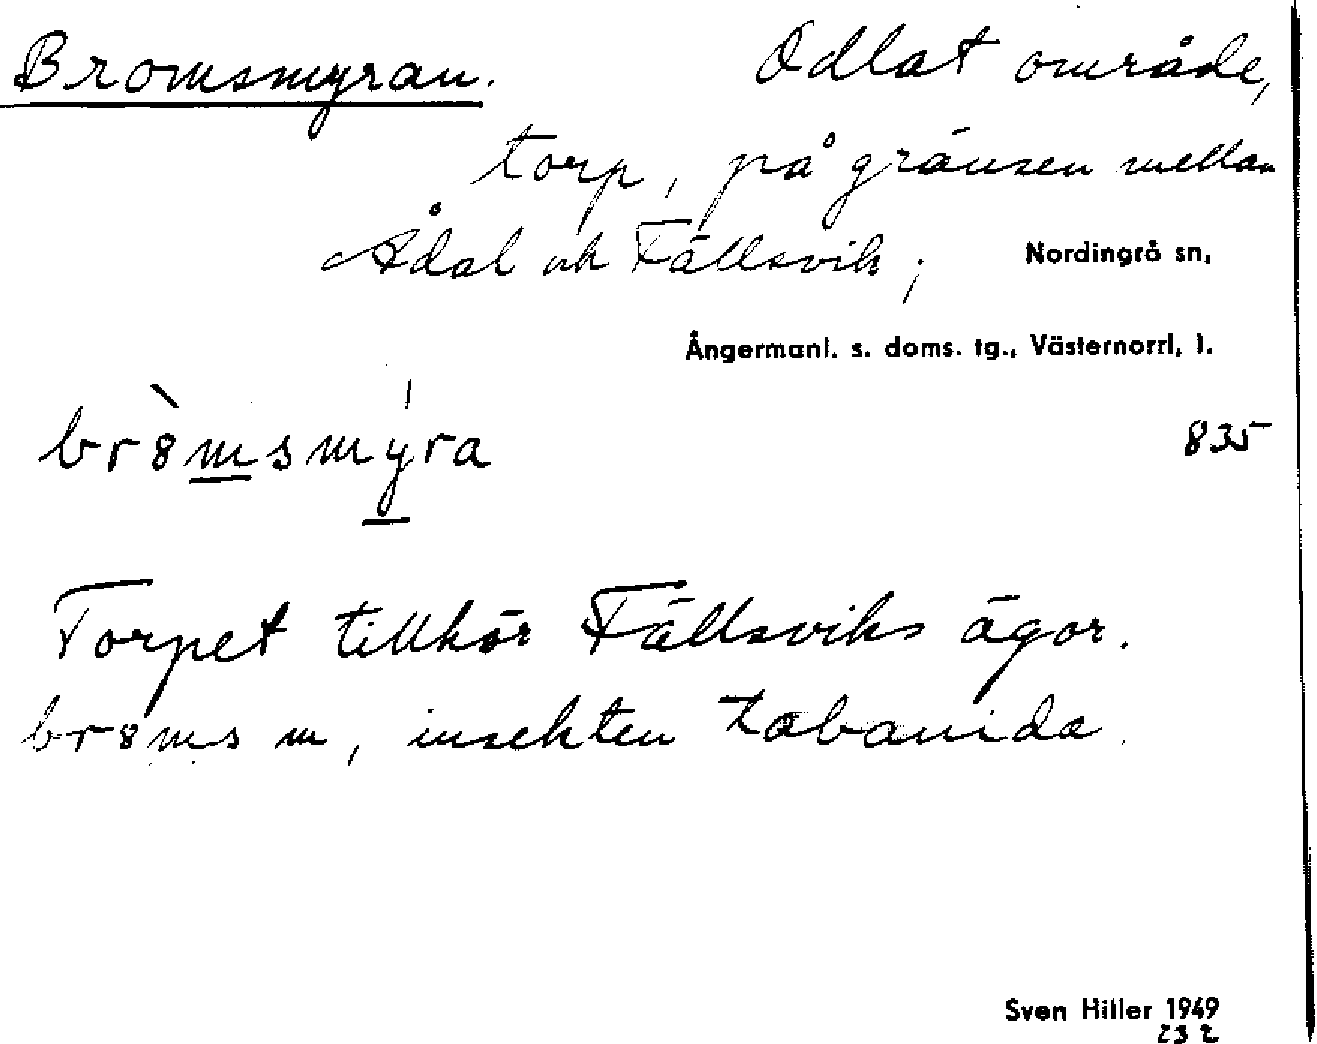 Bromsmyran. Odlat område,
torp, på gränsen mellan
Ådal och Fällsvik; Nordingrå sn,
Ångermanl. s. doms. tg., Västernorrl, l.
br8̀msmýra 835
Torpet tillhör Fällsviks ägor.
br8ms m, insekten tabanida.
Sven Hiller 1949
232